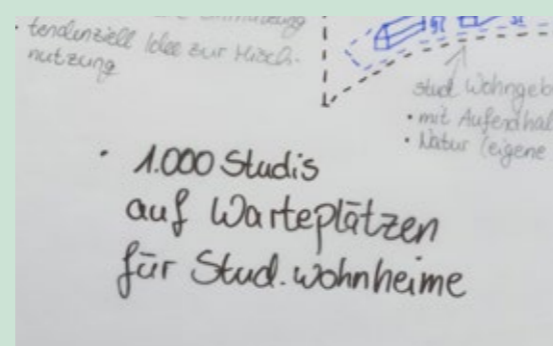 • tendenziell Idee zur Misch-
nutzung
stud. Wohngeb
• mit Aufenthal
• Natur (eigene
• 1.000 Studis
auf Warteplätzen
für Stud.wohnheime